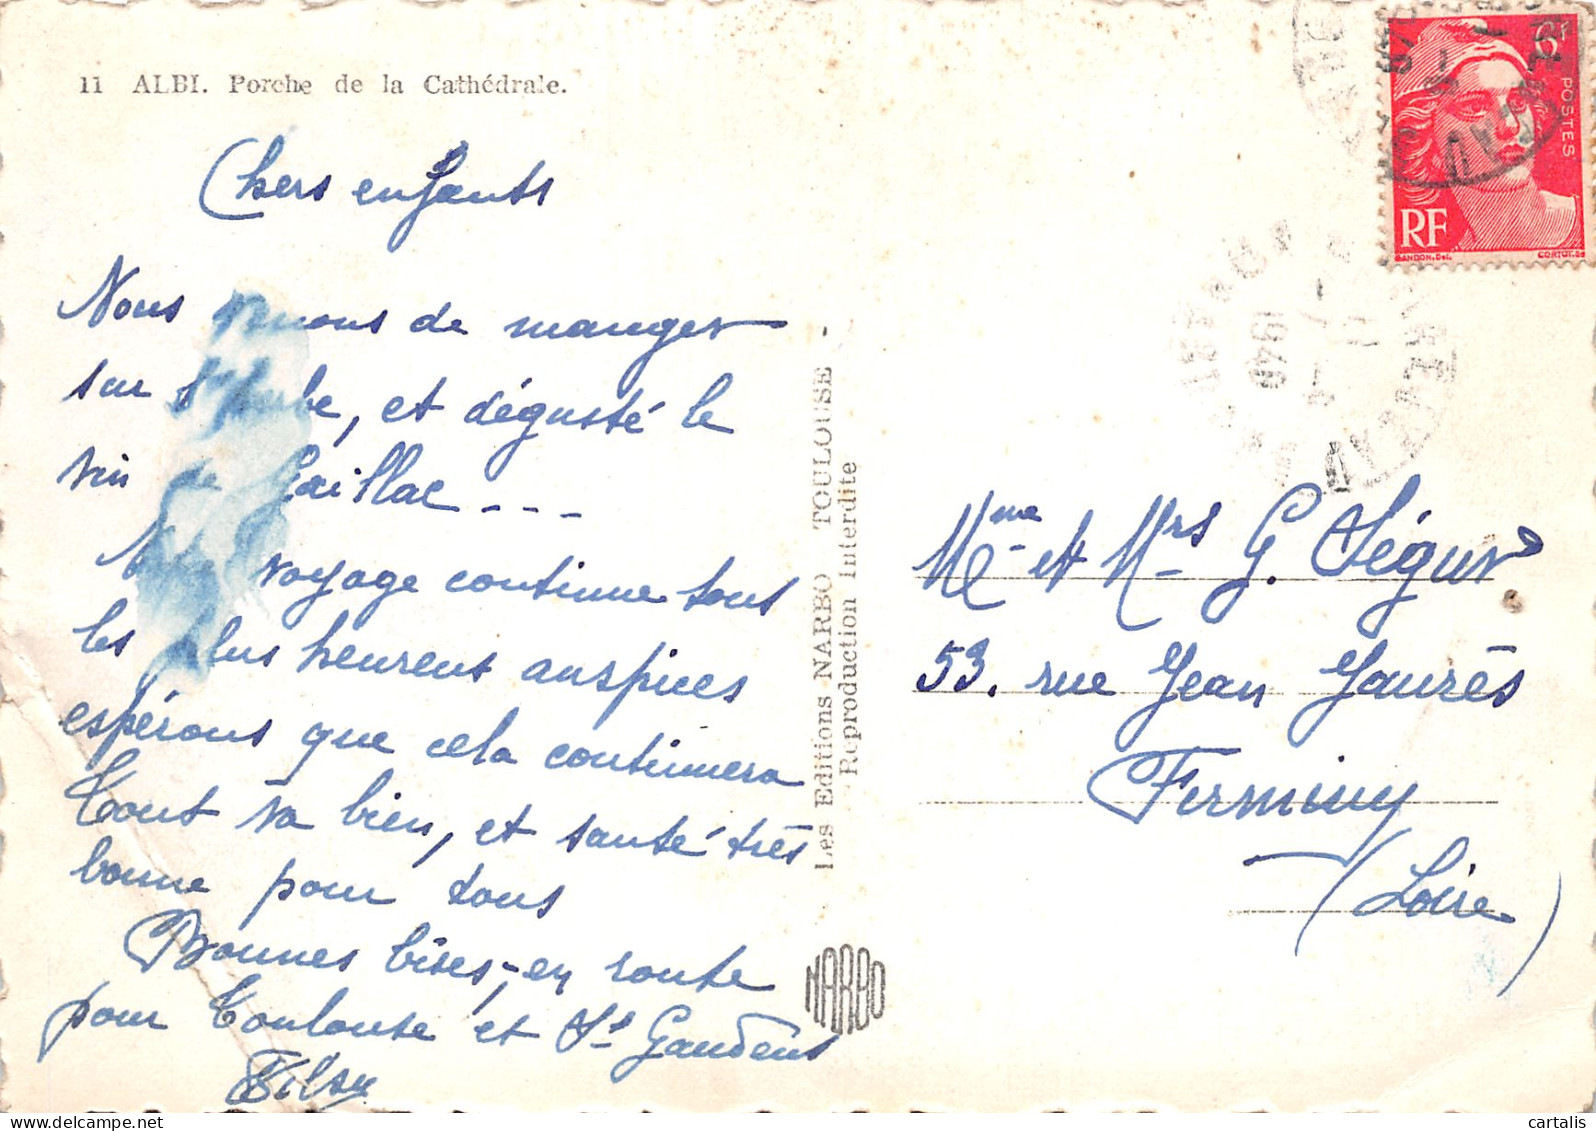 11 ALBI. Porche de la Cathédrale.
Chers enfants
Nous venons de manger
sur l'herbe, et dégusté le
vin de Gaillac ---
Notre voyage continue sous
les plus heureux auspices
espérons que cela continuera
Tout va bien, et santé très
bonne pour tous
Bonnes bises, en route
pour Toulouse et St Gaudens
Les Editions NARBO TOULOUSE -
Reproduction Interdite
NARBO
6F
POSTES
RF
GANDON.Del.
1949
Mme et Mrs G. Ségur
53. rue Jean Jaurès
Firminy
(Loire)
cartalis